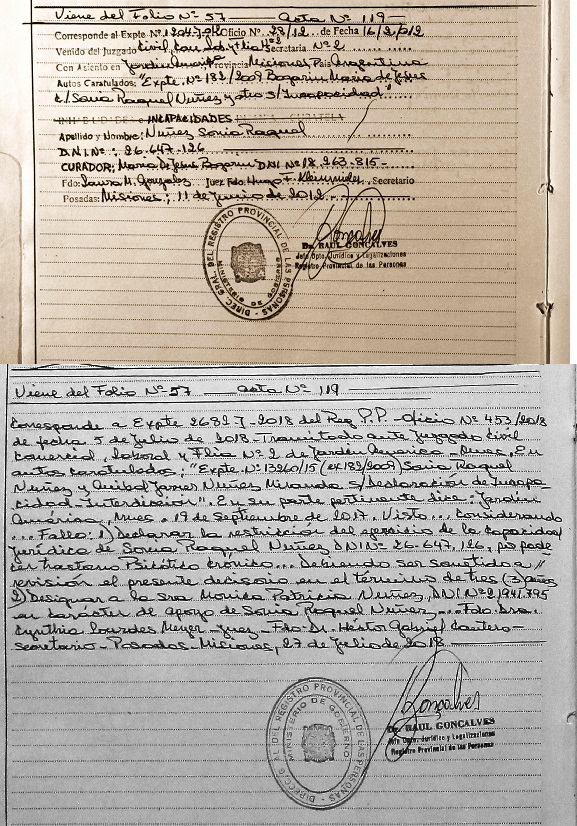 Viene del Folio Nº 57 Acta Nº 119
Corresponde al Expte Nº Oficio Nº 28/12 de Fecha 16/2/2012
Venido del Juzgado Civil, Com. Lab. y Flia Nº 2 Secretaria Nº 2
Con Asiento en Jardín América Provincia Misiones País Argentina
Autos Caratulados: "Expte. Nº 182/2009 Bogarin Maria de Jesus
c/ Sonia Raquel Nuñez y otro s/ Incapacidad"
INCAPACIDADES
Apellido y Nombre: Nuñez Sonia Raquel
D.N.I. Nº: 26.647.126
CURADOR: Maria de Jesus Bogarin DNI Nº 18.263.815-
Fdo: Laura M. Gonzalez Juez Fdo: Hugo F. Secretario
Posadas: Misiones; 11 de Junio de 2012
DIREC. GRAL DEL REGISTRO PROVINCIAL DE LAS PERSONAS
MINISTERIO DE GOBIERNO
Dr. RAUL GONCALVES
Jefe Dpto. Jurídico y Legalizaciones
Registro Provincial de las Personas
Viene del Folio Nº 57 Acta Nº 119
Corresponde a Expte 2682 7-2018 del Reg P.P. -Oficio Nº 453/2018
de fecha 5 de Julio de 2018- Tramitado ante Juzgado Civil
Comercial, Laboral y Flia Nº 2 de Jardín America - Mnes. En
autos caratulados: "Expte Nº 13260/15 (ex 182/2009) Sonia Raquel
Nuñez y Anibal Javier Nuñez Miranda s/ Declaracion de Incapa-
cidad - Interdicción". En su parte pertinente dice: Jardín
América, Mnes. 19 de Septiembre de 2017. Visto... Considerando
... Fallo: 1) Declarar la restricción del ejercicio de la Capacidad
Jurídica de Sonia Raquel Nuñez DNI Nº 26.647.126, por pade-
cer trastorno Psicótico crónico... Debiendo ser sometido a //
revisión el presente decisorio en el término de tres (3) años
2) Designar a la Sra Monica Patricia Nuñez, DNI Nº 21.941.795
en carácter de apoyo de Sonia Raquel Nuñez... Fdo. Dra.
Cynthia Lourdes Meyer - Juez - Fdo Dr. Héctor Gabriel Cantero-
Secretario - Posadas - Misiones, 27 de Julio de 2018
DEL REGISTRO PROVINCIAL DE LAS PERSONAS
MINISTERIO DE GOBIERNO
Dr. RAUL GONCALVES
Jefe Dpto. Jurídico y Legalizaciones
Registro Provincial de las Personas